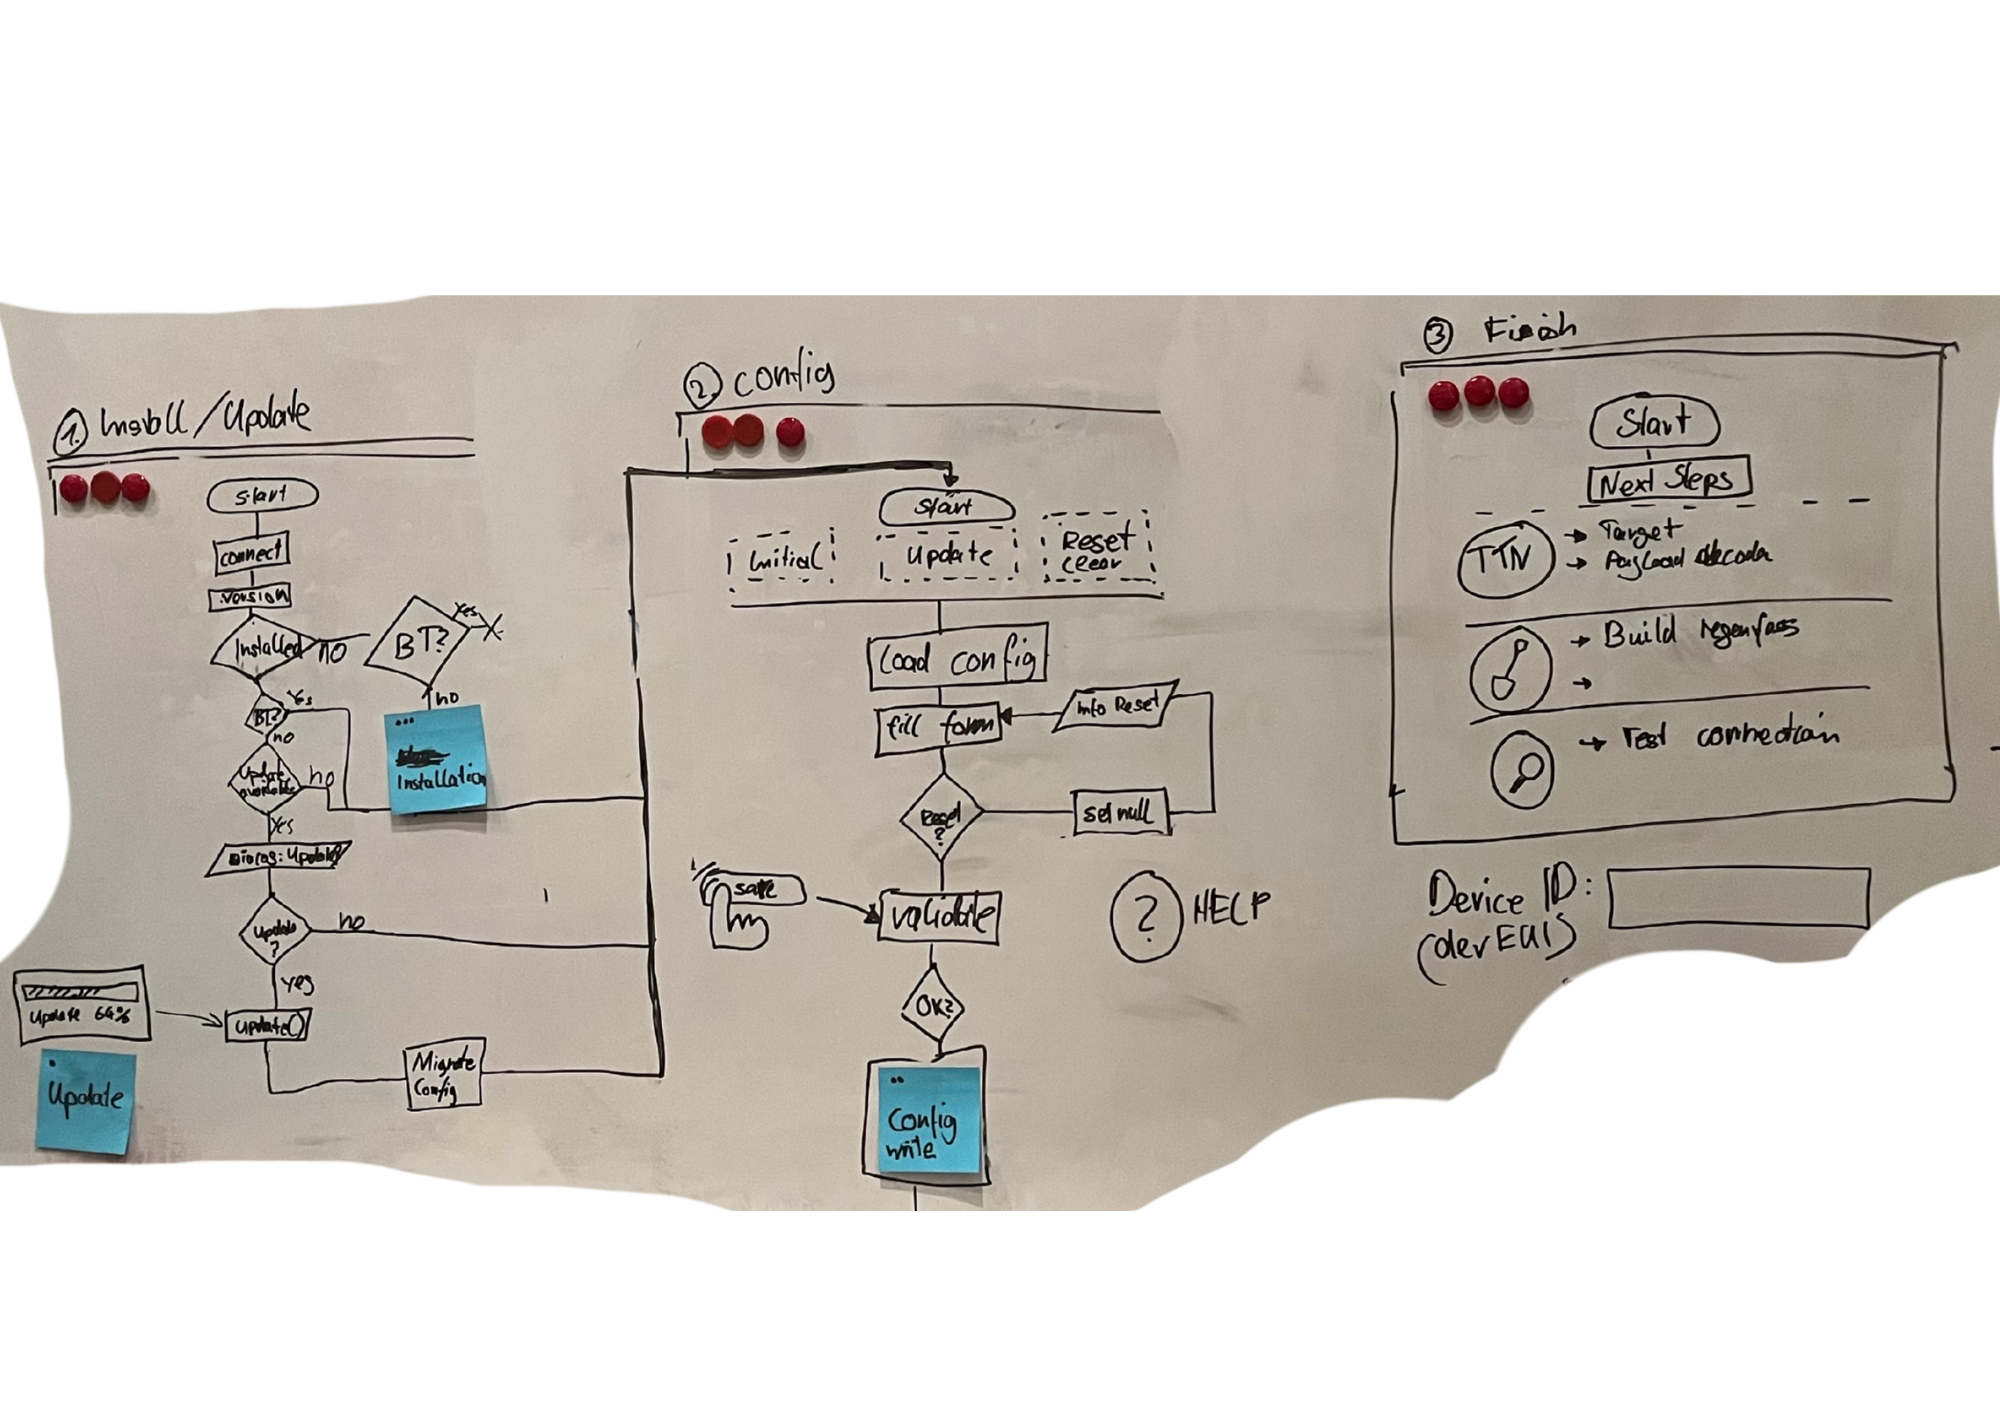 1. Install/Update
start
connect
.version
Installed
no
BT?
yes
no
Installation
BT?
Yes
no
Update
available
no
Yes
Update?
no
yes
Update 64%
update()
Update
Migrate
Config
2. config
Start
Initial
Update
Reset
clear
Load config
fill form
Info Reset
Reset
?
set null
save
validate
? HELP
OK?
Config
write
3 Finish
Start
Next Steps
TTN
→ Target
→ Payload decoder
→ Build regenfass
→
→ Test connection
Device ID:
(devEUI)